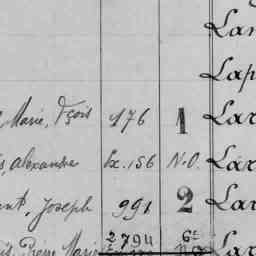 Lap
Marie, Fçois 176 1 Lar
Alexandre bx. 156 N.O. Lar
Joseph 991 2 Lar
Marie 2794 6e Lar